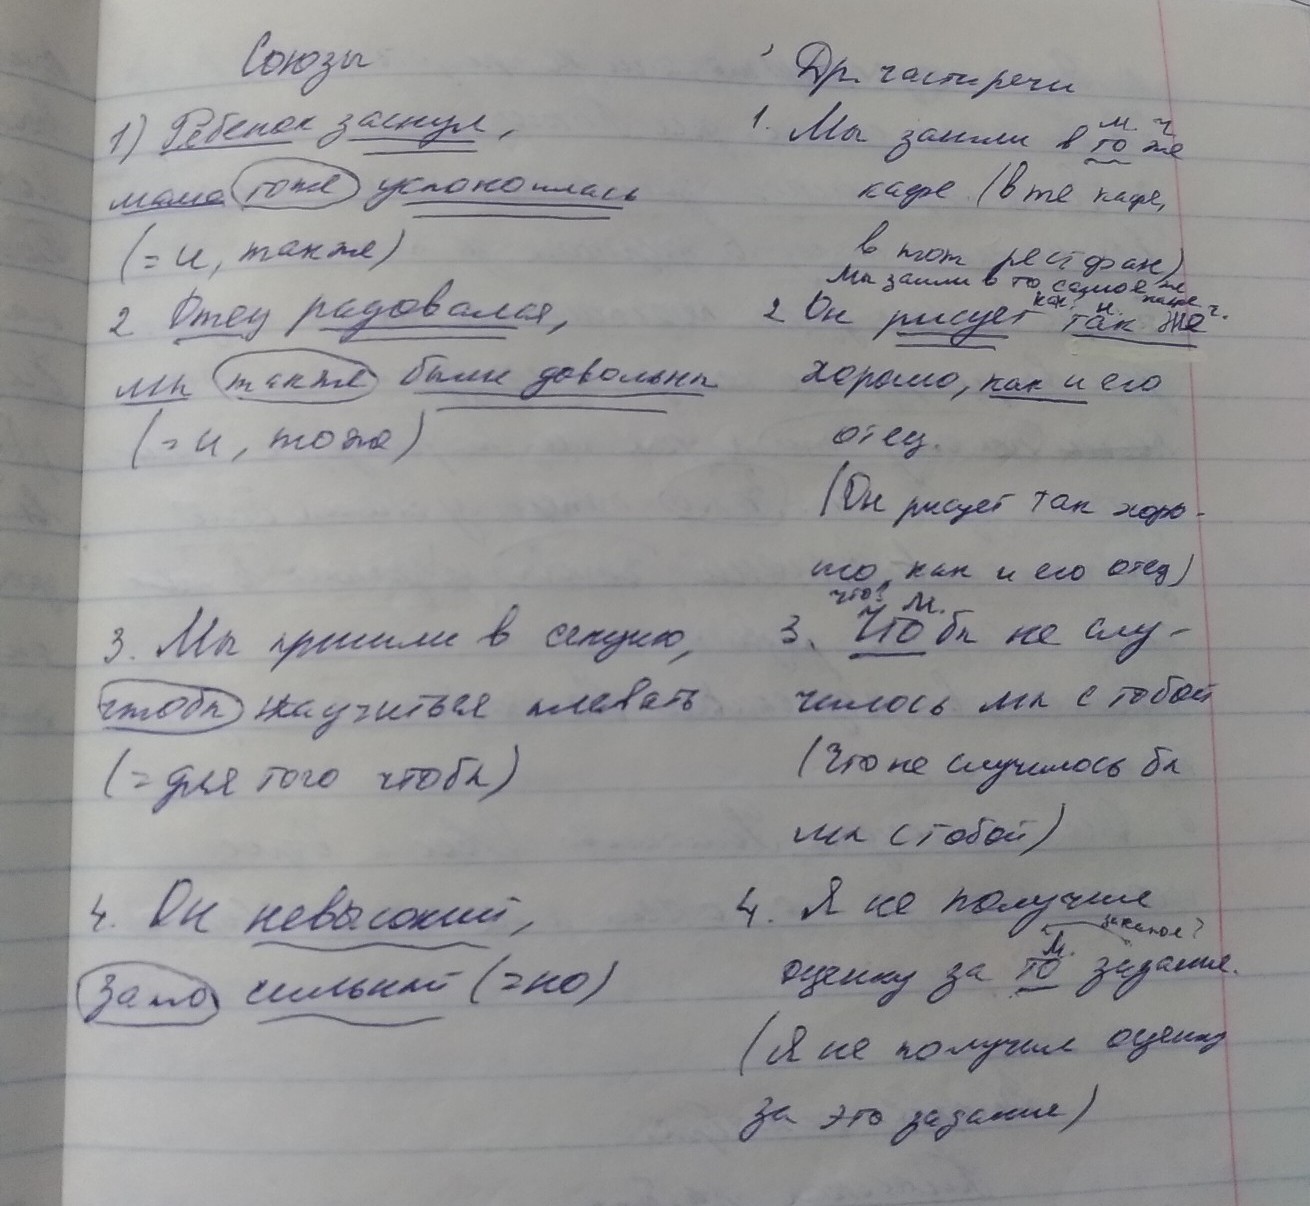 Союзы
1) Ребенок заснул,
мама тоже успокоилась
(= и, также)
2 Отец радовался,
мы также были довольны
(= и, тоже)
3. Мы пришли в секцию,
чтобы научиться плавать
(= для того чтобы)
4. Он невысокий,
зато сильный (=но)
Др. части речи
м. ч
1. Мы зашли в то же
кафе (в те кафе,
в тот ресторан)
Мы зашли в то самое же
кафе
как? н. ч.
2 Он рисует так же
хорошо, как и его
отец.
(Он рисует так хоро-
шо, как и его отец)
что? м.
3. Что бы не слу-
чилось мы с тобой
(Что не случилось бы
мы с тобой)
4. Я не получил
за какое?
м.
оценку за то задание.
(Я не получил оценку
за это задание)